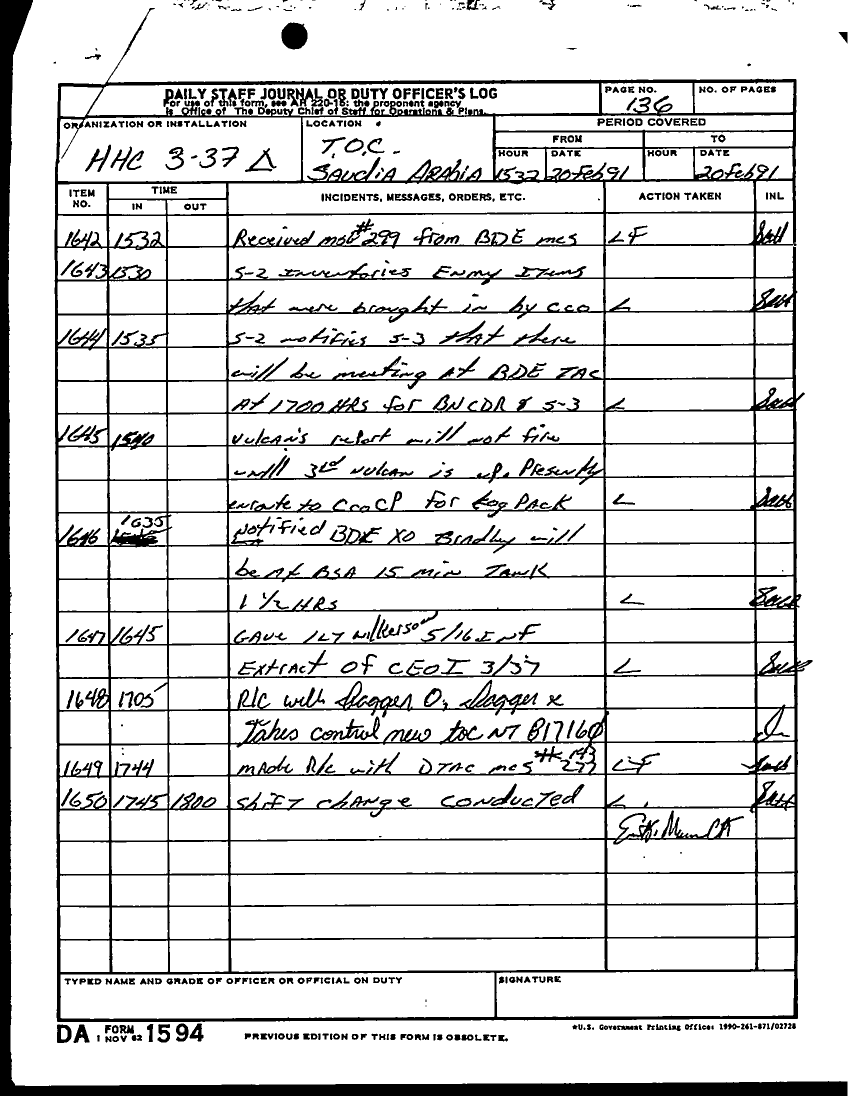 DAILY STAFF JOURNAL OR DUTY OFFICER'S LOG
For use of this form, see AR 220-15; the proponent agency
is Office of The Deputy Chief of Staff for Operations & Plans.
PAGE NO.
136
NO. OF PAGES
ORGANIZATION OR INSTALLATION
HHC 3-37 Δ
LOCATION
T.O.C.
SAUDIA ARABIA
PERIOD COVERED
FROM
TO
HOUR
DATE
HOUR
DATE
1532 20Feb91
20Feb91
ITEM NO.
TIME
IN
OUT
INCIDENTS, MESSAGES, ORDERS, ETC.
ACTION TAKEN
INL
1642 1532 Received #299 from BDE mcs LF
1643 1530 S-2 Inventories Enmy Items
that were brought in by cco L
1644 1535 S-2 notifies S-3 that there
will be meeting At BDE TAC
At 1700 HRS for BNCDR & S-3 L
1645 1540 Vulcan's report will not fire
untill 3rd Vulcan is up. Presently
enroute to CcoCP For LogPACK L
1646 1635 Notified BDE XO Bradley will
be At BSA 15 min Tank
1 1/2 HRS L
1647 1645 GAVE 1LT Wilkerson 5/16 INF
Extract OF CEOI 3/37 L
1648 1705 R/C with Dagger O, Dagger x
takes control new toc NT 817160
1649 1744 made R/c with DTAC mcs LF
1650 1745 1800 shift change conducted L
TYPED NAME AND GRADE OF OFFICER OR OFFICIAL ON DUTY
SIGNATURE
DA FORM 1594
1 NOV 62
PREVIOUS EDITION OF THIS FORM IS OBSOLETE.
*U.S. Government Printing Office: 1990-261-871/02728